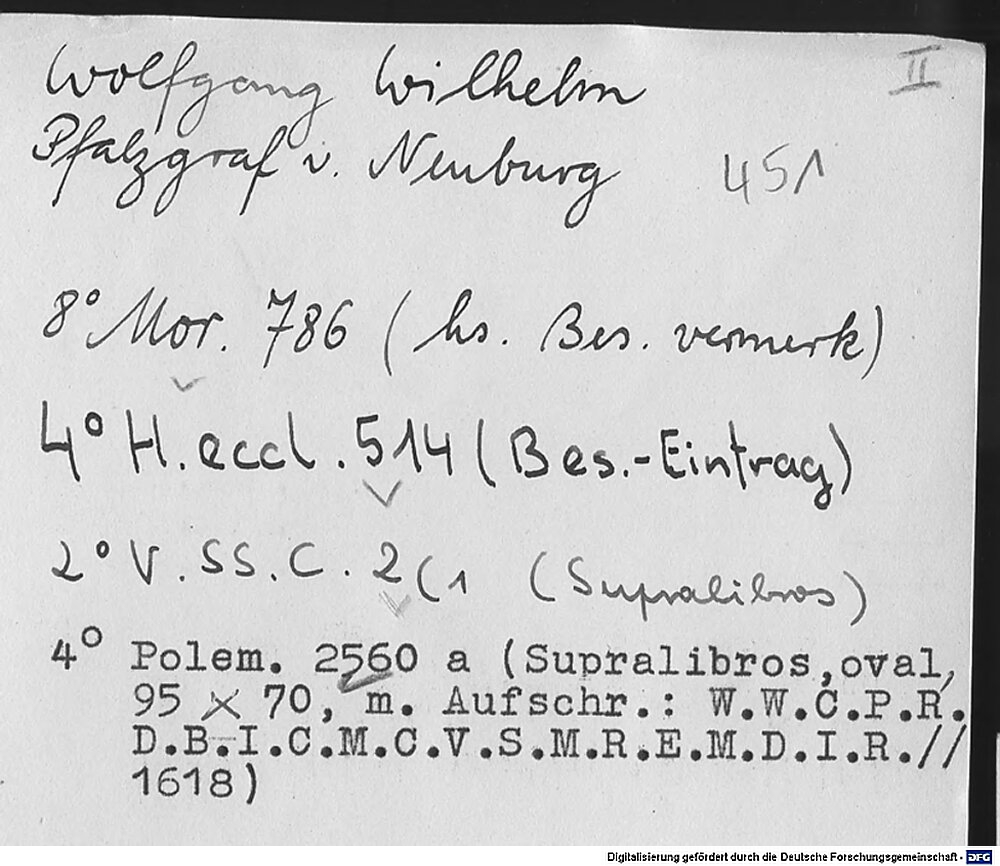 Wolfgang Wilhelm
II
Pfalzgraf v. Neuburg
451
8° Mor. 786 (hs. Bes. vermerk)
4° H. eccl. 514 (Bes.-Eintrag)
2° V. SS. C. 2(1 (Supralibros)
4° Polem. 2560 a (Supralibros,oval,
95 x 70, m. Aufschr.: W.W.C.P.R.
D.B.I.C.M.C.V.S.M.R.E.M.D.I.R.//
1618)
Digitalisierung gefördert durch die Deutsche Forschungsgemeinschaft - DFG